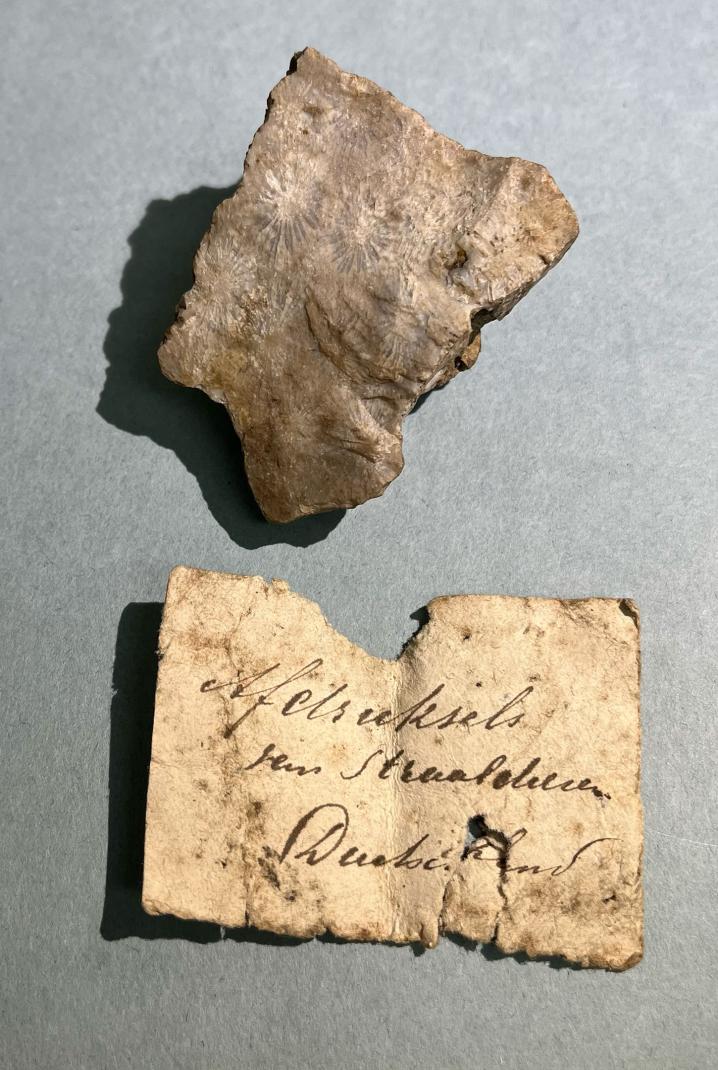 Afdruksels
van Straaldieren
Duitschland